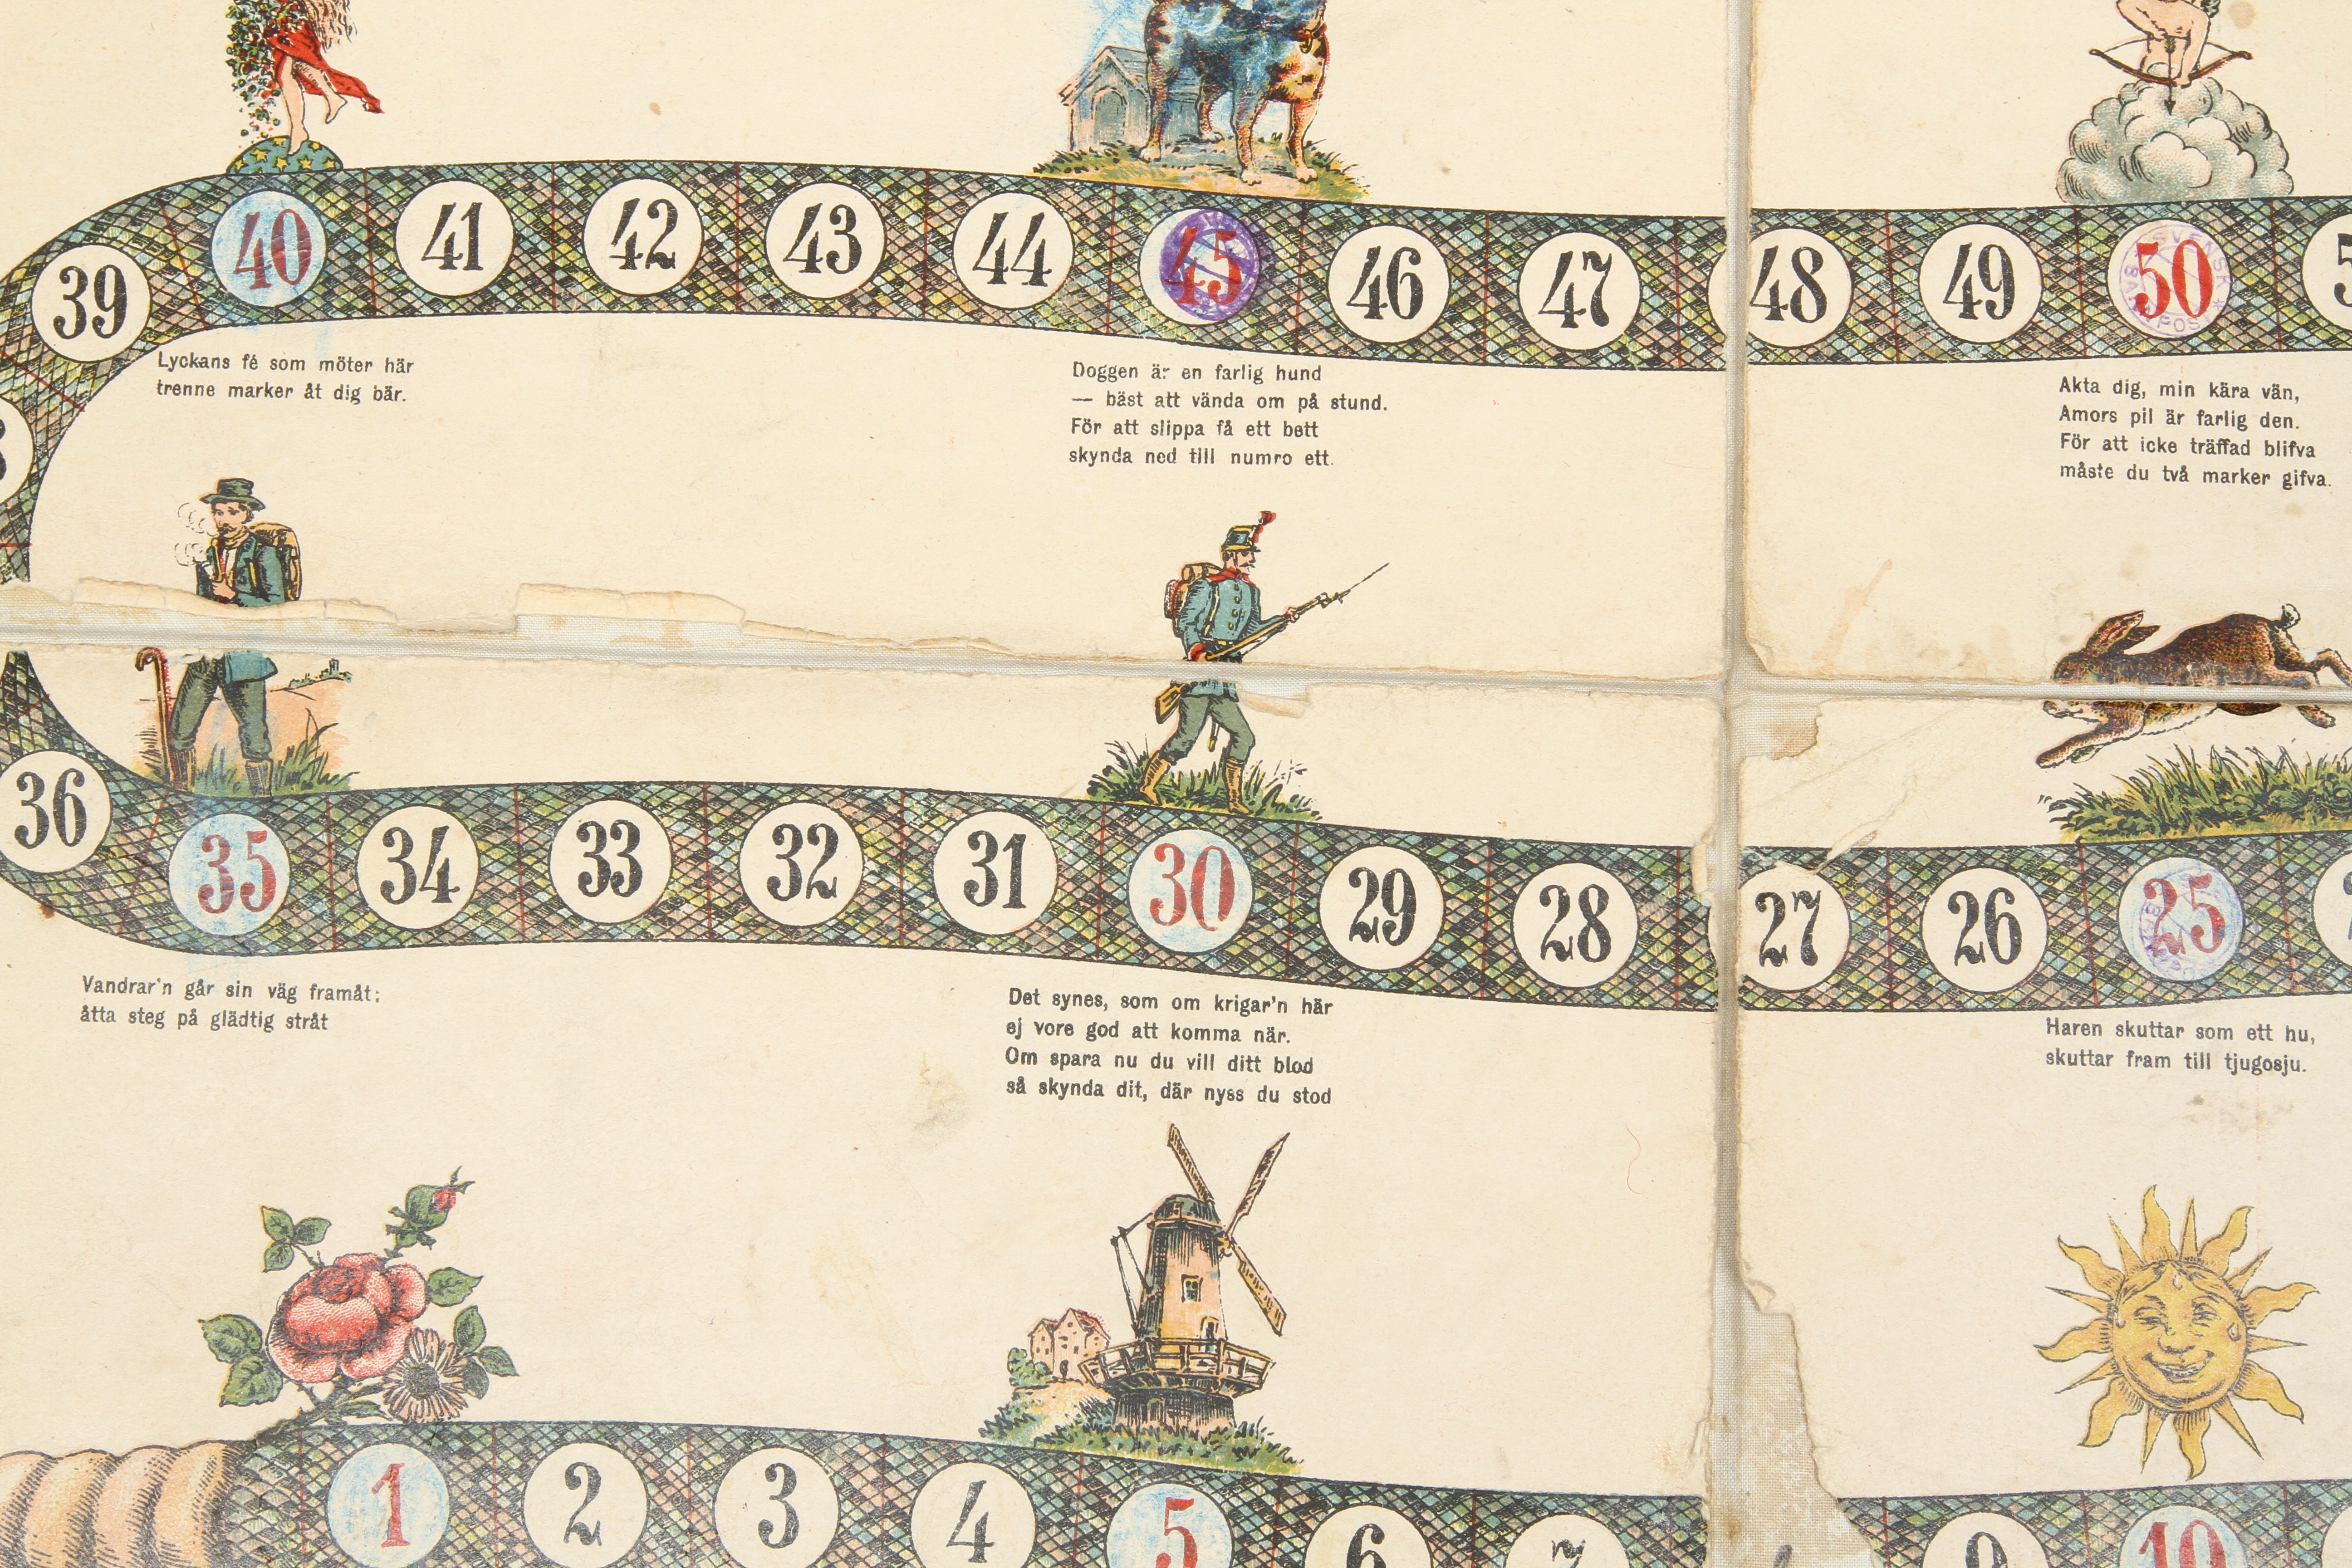 39 40 41 42 43 44 45 46 47 48 49 50
SVENSK
Lyckans fé som möter här
trenne marker åt dig bär.
Doggen är en farlig hund
— bäst att vända om på stund.
För att slippa få ett bett
skynda ned till numro ett.
Akta dig, min kära vän,
Amors pil är farlig den.
För att icke träffad blifva
måste du två marker gifva.
36 35 34 33 32 31 30 29 28 27 26 25
Vandrar'n går sin väg framåt;
åtta steg på glädtig stråt
Det synes, som om krigar'n här
ej vore god att komma när.
Om spara nu du vill ditt blod
så skynda dit, där nyss du stod
Haren skuttar som ett hu,
skuttar fram till tjugosju.
1 2 3 4 5 6 7 9 10